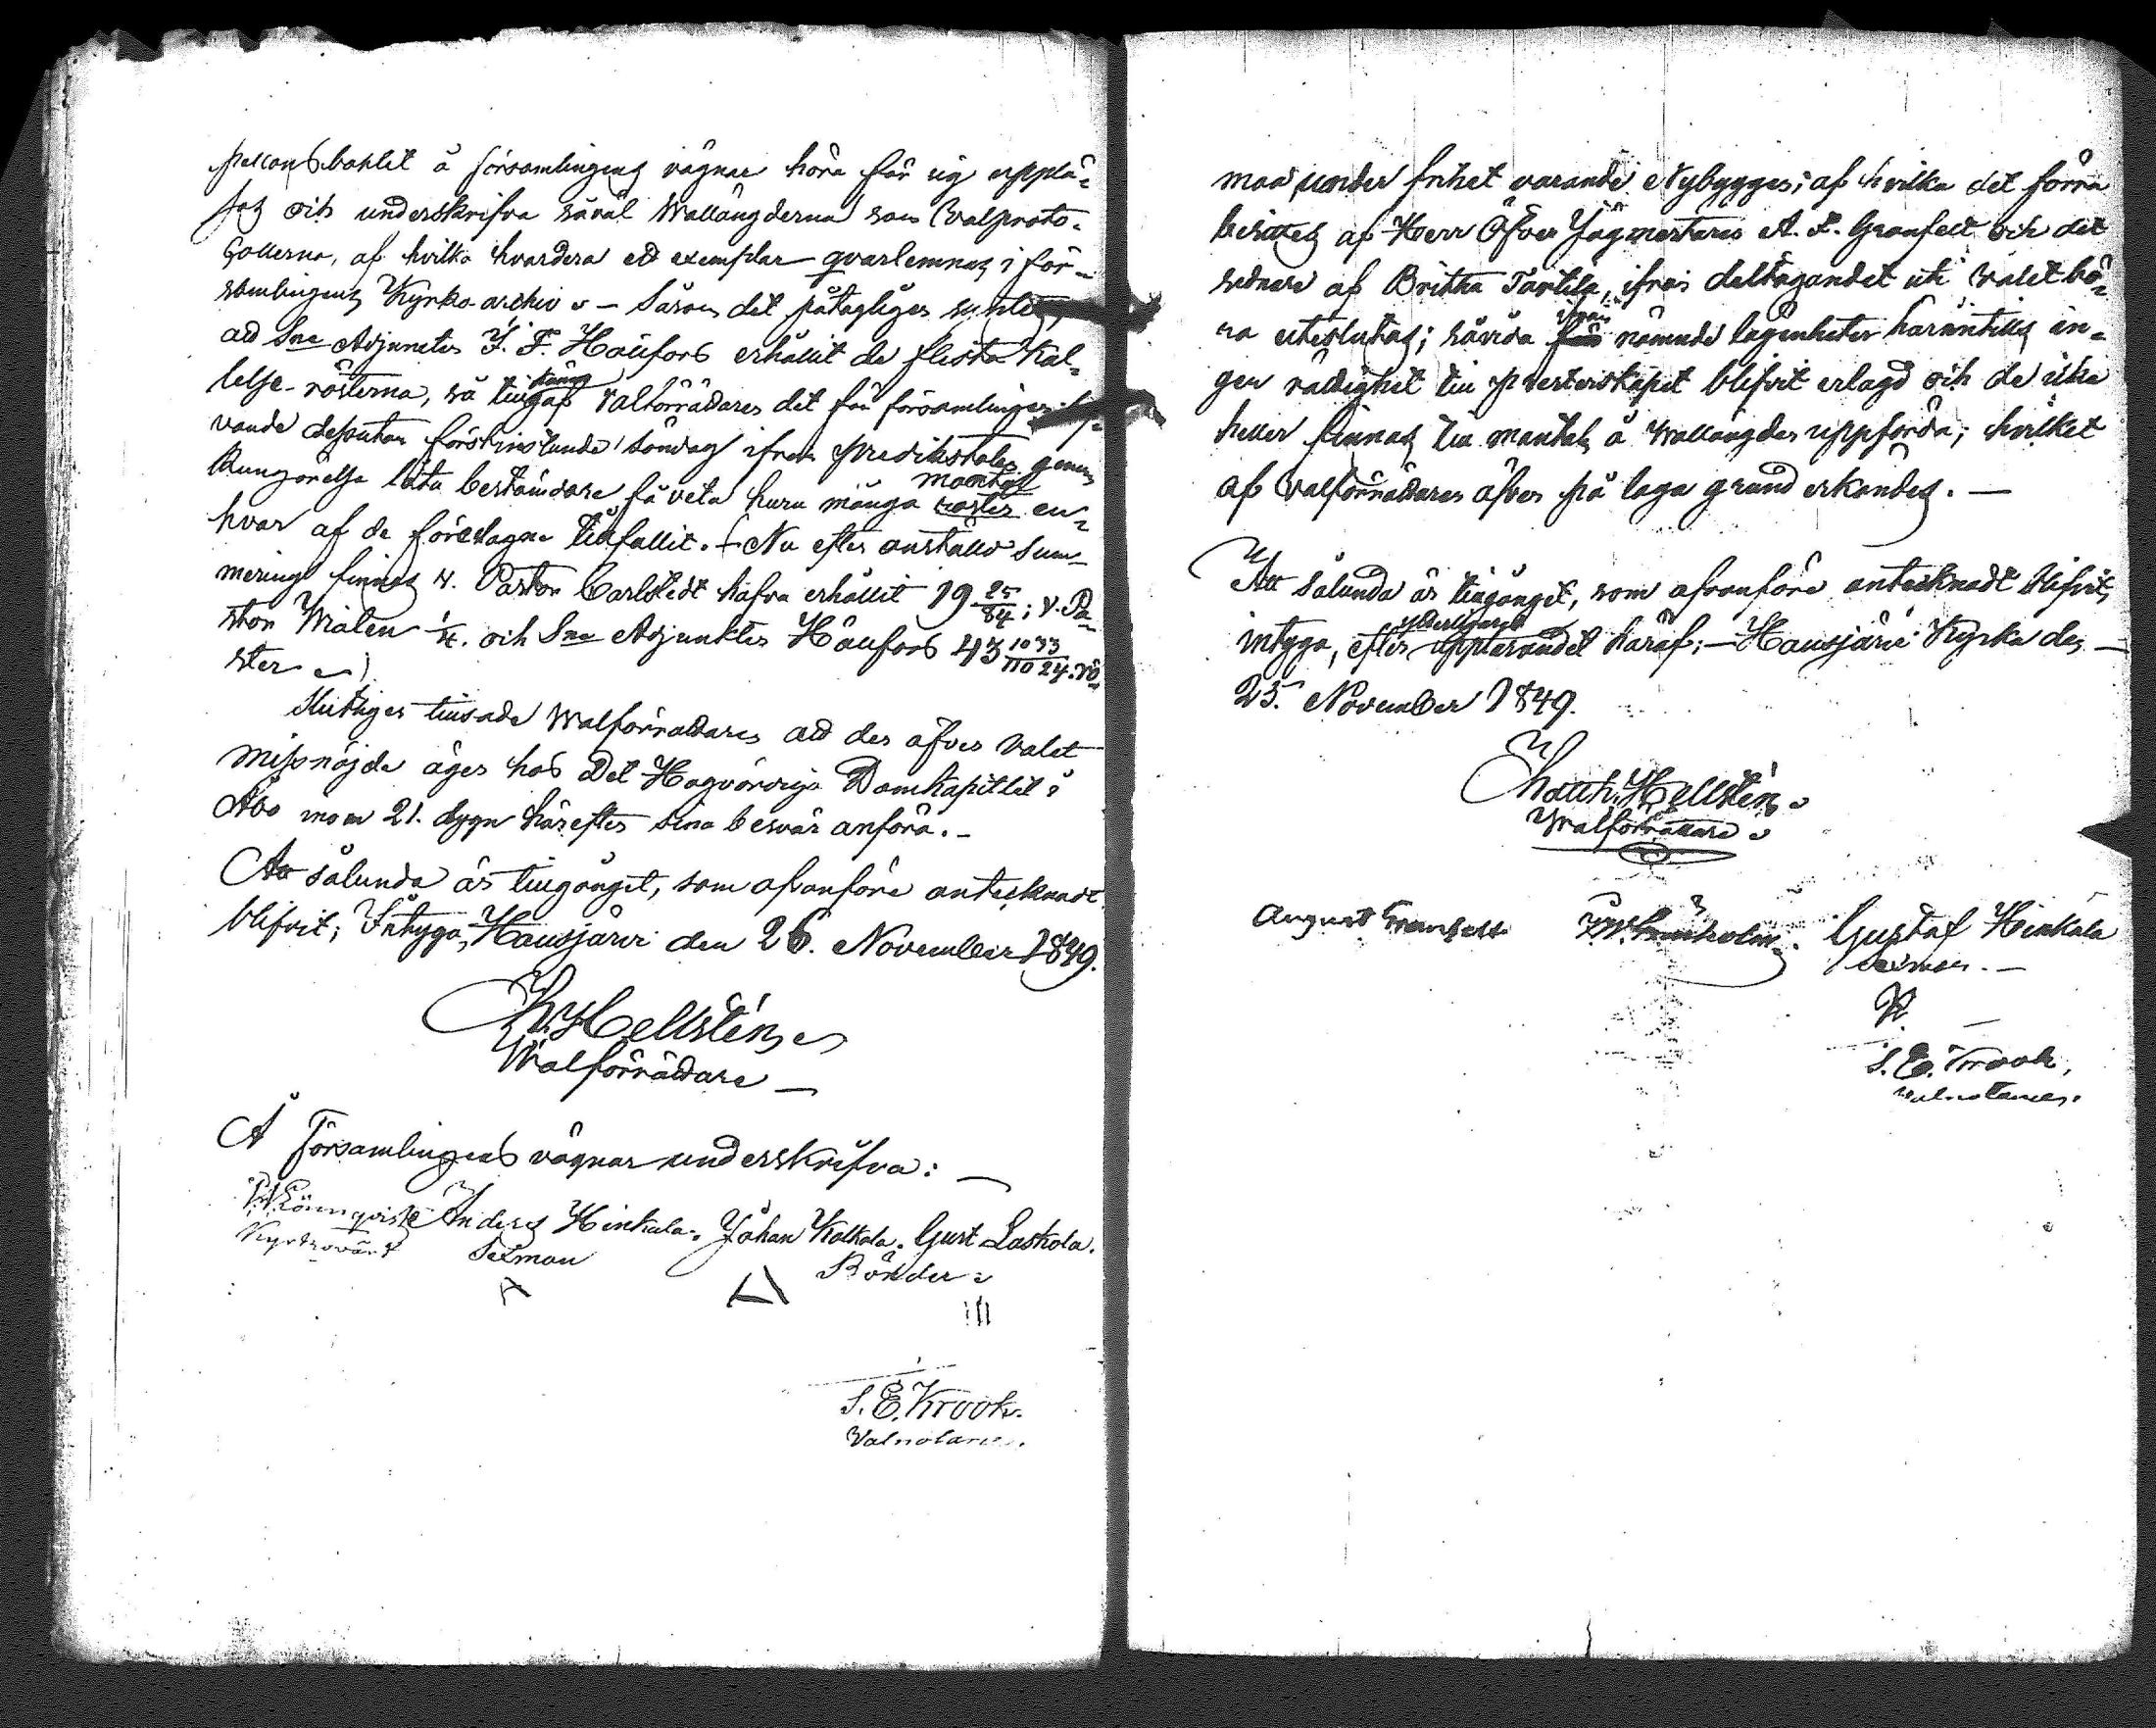 å församlingens vägnar höra för sig upplä-
sas och underskrifva såväl Wallängderna som Valproto-
collerna, af hvilka hvardera ett exemplar qvarlemnas i för-
samlingens Kyrko archiv. — Såsom det påtagligen
att Sne Adjuncten J. F. Häufors erhållit de flesta Kal-
lelse-rösterna, så tillgaf Valförrättaren det för församlingen
vande deputan förstinstundande Söndag ifrån Predikstolen genom
Kungörelse låta bestämdare få veta huru många mantal en-
hvar af de föreslagne tillfallit. Nu efter anställd sum-
mering finnes V. Pastor Carlstedt hafva erhållit 19 25/84; V. Pa-
stor Malen 1/4. och Sne Adjunkten Häufors 43 1033/11024. rö-
ster
Slutligen tillsade Walförrättaren att den öfver Valet
missnöjde äger hos Det Högvördiga Domkapitlet i
Åbo inom 21. dygn härefter sina besvär anföra. —
Att sålunda är tillgånget, som ofvanföre antecknadt
blifvit; Intyga, Hausjärvi den 26. November 1849.
Hellsten
Walförrättare —
Å Församlingens vägnar underskrifva: —
Lönnqvist Anders Hinkala. Johan Kalkola. Gust Laskola.
Kyrkovärd Sexman Bönder
S. E. Krook.
Valnotarie.
maa under frihet varande Nybyggen; af hvilka det förra
besittes af Herr Öfver Jägmästaren A. F. Granfelt och det
sednare af Britha Tartila, ifrån deltagandet uti valet bö-
ra uteslutas; såvida från nämnde lägenheter härintills in-
gen rättighet till Presterskapet blifvit erlagd och de icke
heller finnas till mantal å Wallängden uppförda; hvilket
af Valförrättaren äfven på laga grund erkändes. —
Att sålunda är tillgånget, som ofvanföre antecknadt blifvit,
intyga, efter ytterligare uppläsandet häraf; — Hausjärvi Kyrka den —
25. November 1849.
Math. Hellsten
Walförrättare
August Granfelt Gustaf Hinkala
sexman. —
S. E. Krook,
Valnotarie.